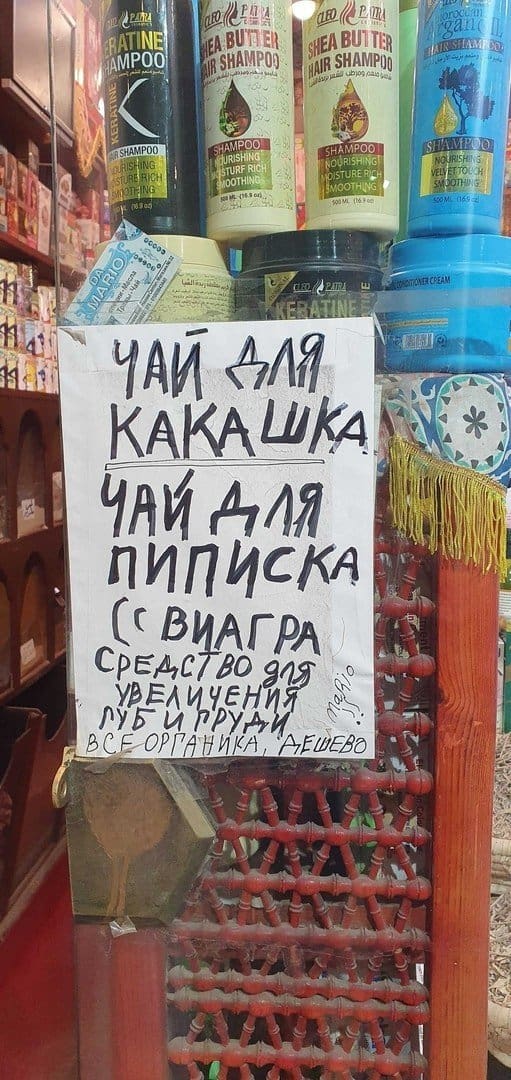 CLEO PATRA
KERATINE
SHAMPOO
KERATINE
K
HAIR SHAMPOO
NOURISHING
MOISTURE RICH
SMOOTHING
500 ML (16.9 oz)
CLEO PATRA
SHEA BUTTER
HAIR SHAMPOO
SHAMPOO
NOURISHING
MOISTURF RICH
SMOOTHING
500 ML (16.9 oz)
CLEO PATRA
SHEA BUTTER
HAIR SHAMPOO
SHAMPOO
NOURISHING
MOISTURE RICH
SMOOTHING
500 ML (16.9 oz)
HAIR SHAMPOO
SHAMPOO
NOURISHING
VELVET TOUCH
SMOOTHING
500 ML (16.9 oz)
DA
MARIO
CLEO PATRA
KERATINE
CONDITIONER CREAM
ЧАЙ ДЛЯ
КАКАШКА
ЧАЙ ДЛЯ
ПИПИСКА
(( ВИАГРА
СРЕДСТВО для
УВЕЛИЧЕНИЯ
ГУБ И ГРУДИ
ВСЕ ОРГАНИКА, ДЕШЕВО